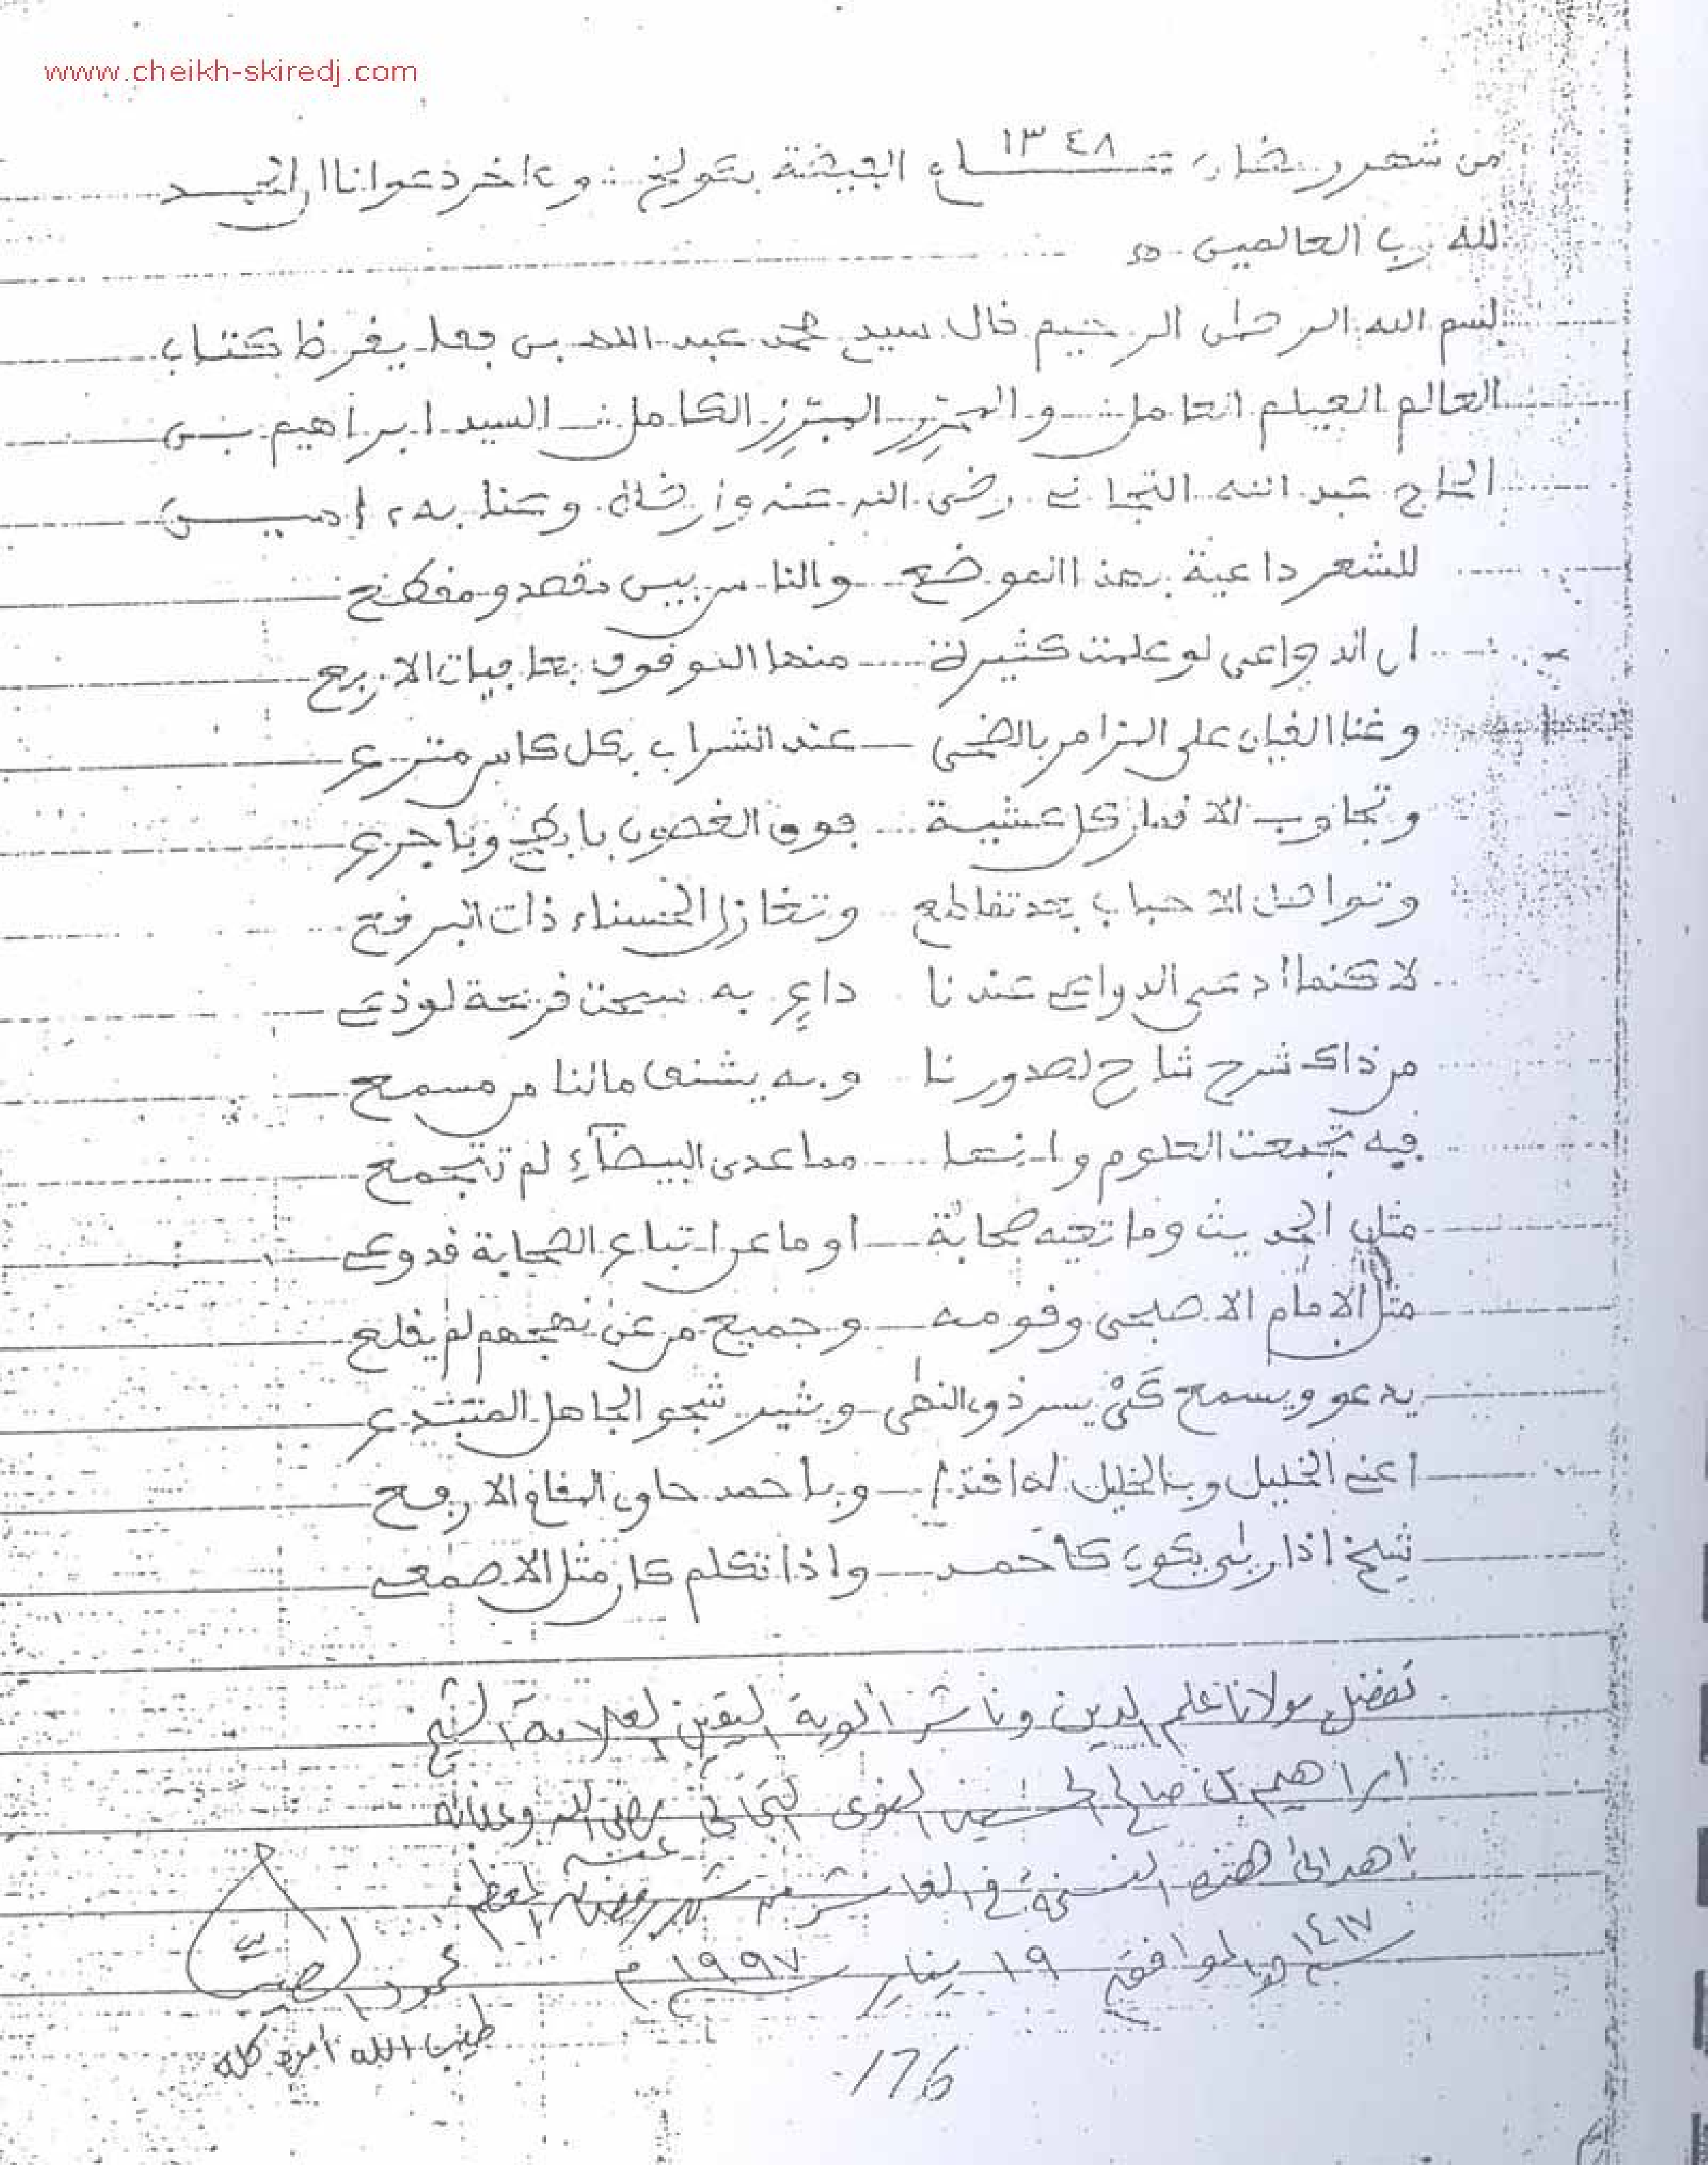 www.cheikh-skiredj.com
من شهر رمضان سنة ١٣٤٨ البيضة بكولخ وءاخر دعوانا ان الحمد
لله رب العالمين
بسم الله الرحمن الرحيم قال سيد محمد عبد الله بن يقرظ كتاب
العالم العيلم العامل والمحرر المبرز الكامل السيد ابراهيم بن
الحاج عبد الله التجاني رضي الله عنه وأرضاه وعنا به ءامين
للشعر داعية بهذا الموضع والناس بين مقصد ومقطع
ان الدواعي لو علمت كثيرة منها الوقوف بعافيات الاربع
وغنا القيان على المزامر بالضحى عند الشراب بكل كاس مترع
وتجاوب الاقمار كل عشية فوق الغصون وباجرع
وتواصل الاحباب بعد تقاطع وتغازل الخنساء ذات البرقع
لاكنما أدعى الدواعي عندنا داع به سمحت قريحة لوذعي
من ذاك شرح شارح لصدورنا وبه يشنف مالنا من مسمع
فيه تجمعت العلوم وانها مما عدى البيضآء لم تتجمع
مثل الحديث وما تعيه صحابة او ما عن اتباع الصحابة قد وعي
مثل الامام الاصبحي وقومه وجميع من عن نهجهم لم يقلع
يدعو ويسمع كي يسر ذوي النهى ويثير شجو الجاهل المتبدع
اعني الخليل وبالخليل له اقتدا وباحمد حاوي المقام الارفع
شيخ اذا ربى يكون كأحمد واذا تكلم كان مثل الاصمعي
تفضل مولانا علم الدين وناشر ألوية اليقين العلامة الشيخ
ابراهيم بن صالح الحسيني النوي التجاني رضي الله عنه
باهدائي هذه النسخة في العاشر من شهر رمضان المعظم
سنة ١٤١٧ هـ الموافق ١٩ يناير سنة ١٩٩٧ م
محمود
طيب الله أمره كله
176